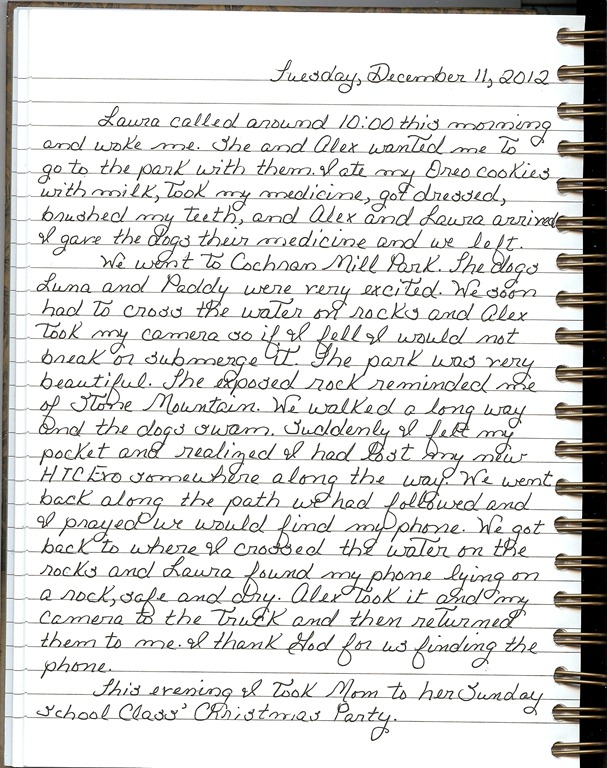 Tuesday, December 11, 2012
Laura called around 10:00 this morning
and woke me. She and Alex wanted me to
go to the park with them. I ate my Oreo cookies
with milk, took my medicine, got dressed,
brushed my teeth, and Alex and Laura arrived.
I gave the dogs their medicine and we left.
We went to Cochran Mill Park. The dogs
Luna and Paddy were very excited. We soon
had to cross the water on rocks and Alex
took my camera so if I fell I would not
break or submerge it. The park was very
beautiful. The exposed rock reminded me
of Stone Mountain. We walked a long way
and the dogs swam. Suddenly I felt my
pocket and realized I had lost my new
HTC Evo somewhere along the way. We went
back along the path we had followed and
I prayed we would find my phone. We got
back to where I crossed the water on the
rocks and Laura found my phone lying on
a rock, safe and dry. Alex took it and my
camera to the truck and then returned
them to me. I thank God for us finding the
phone.
This evening I took Mom to her Sunday
school Class' Christmas Party.